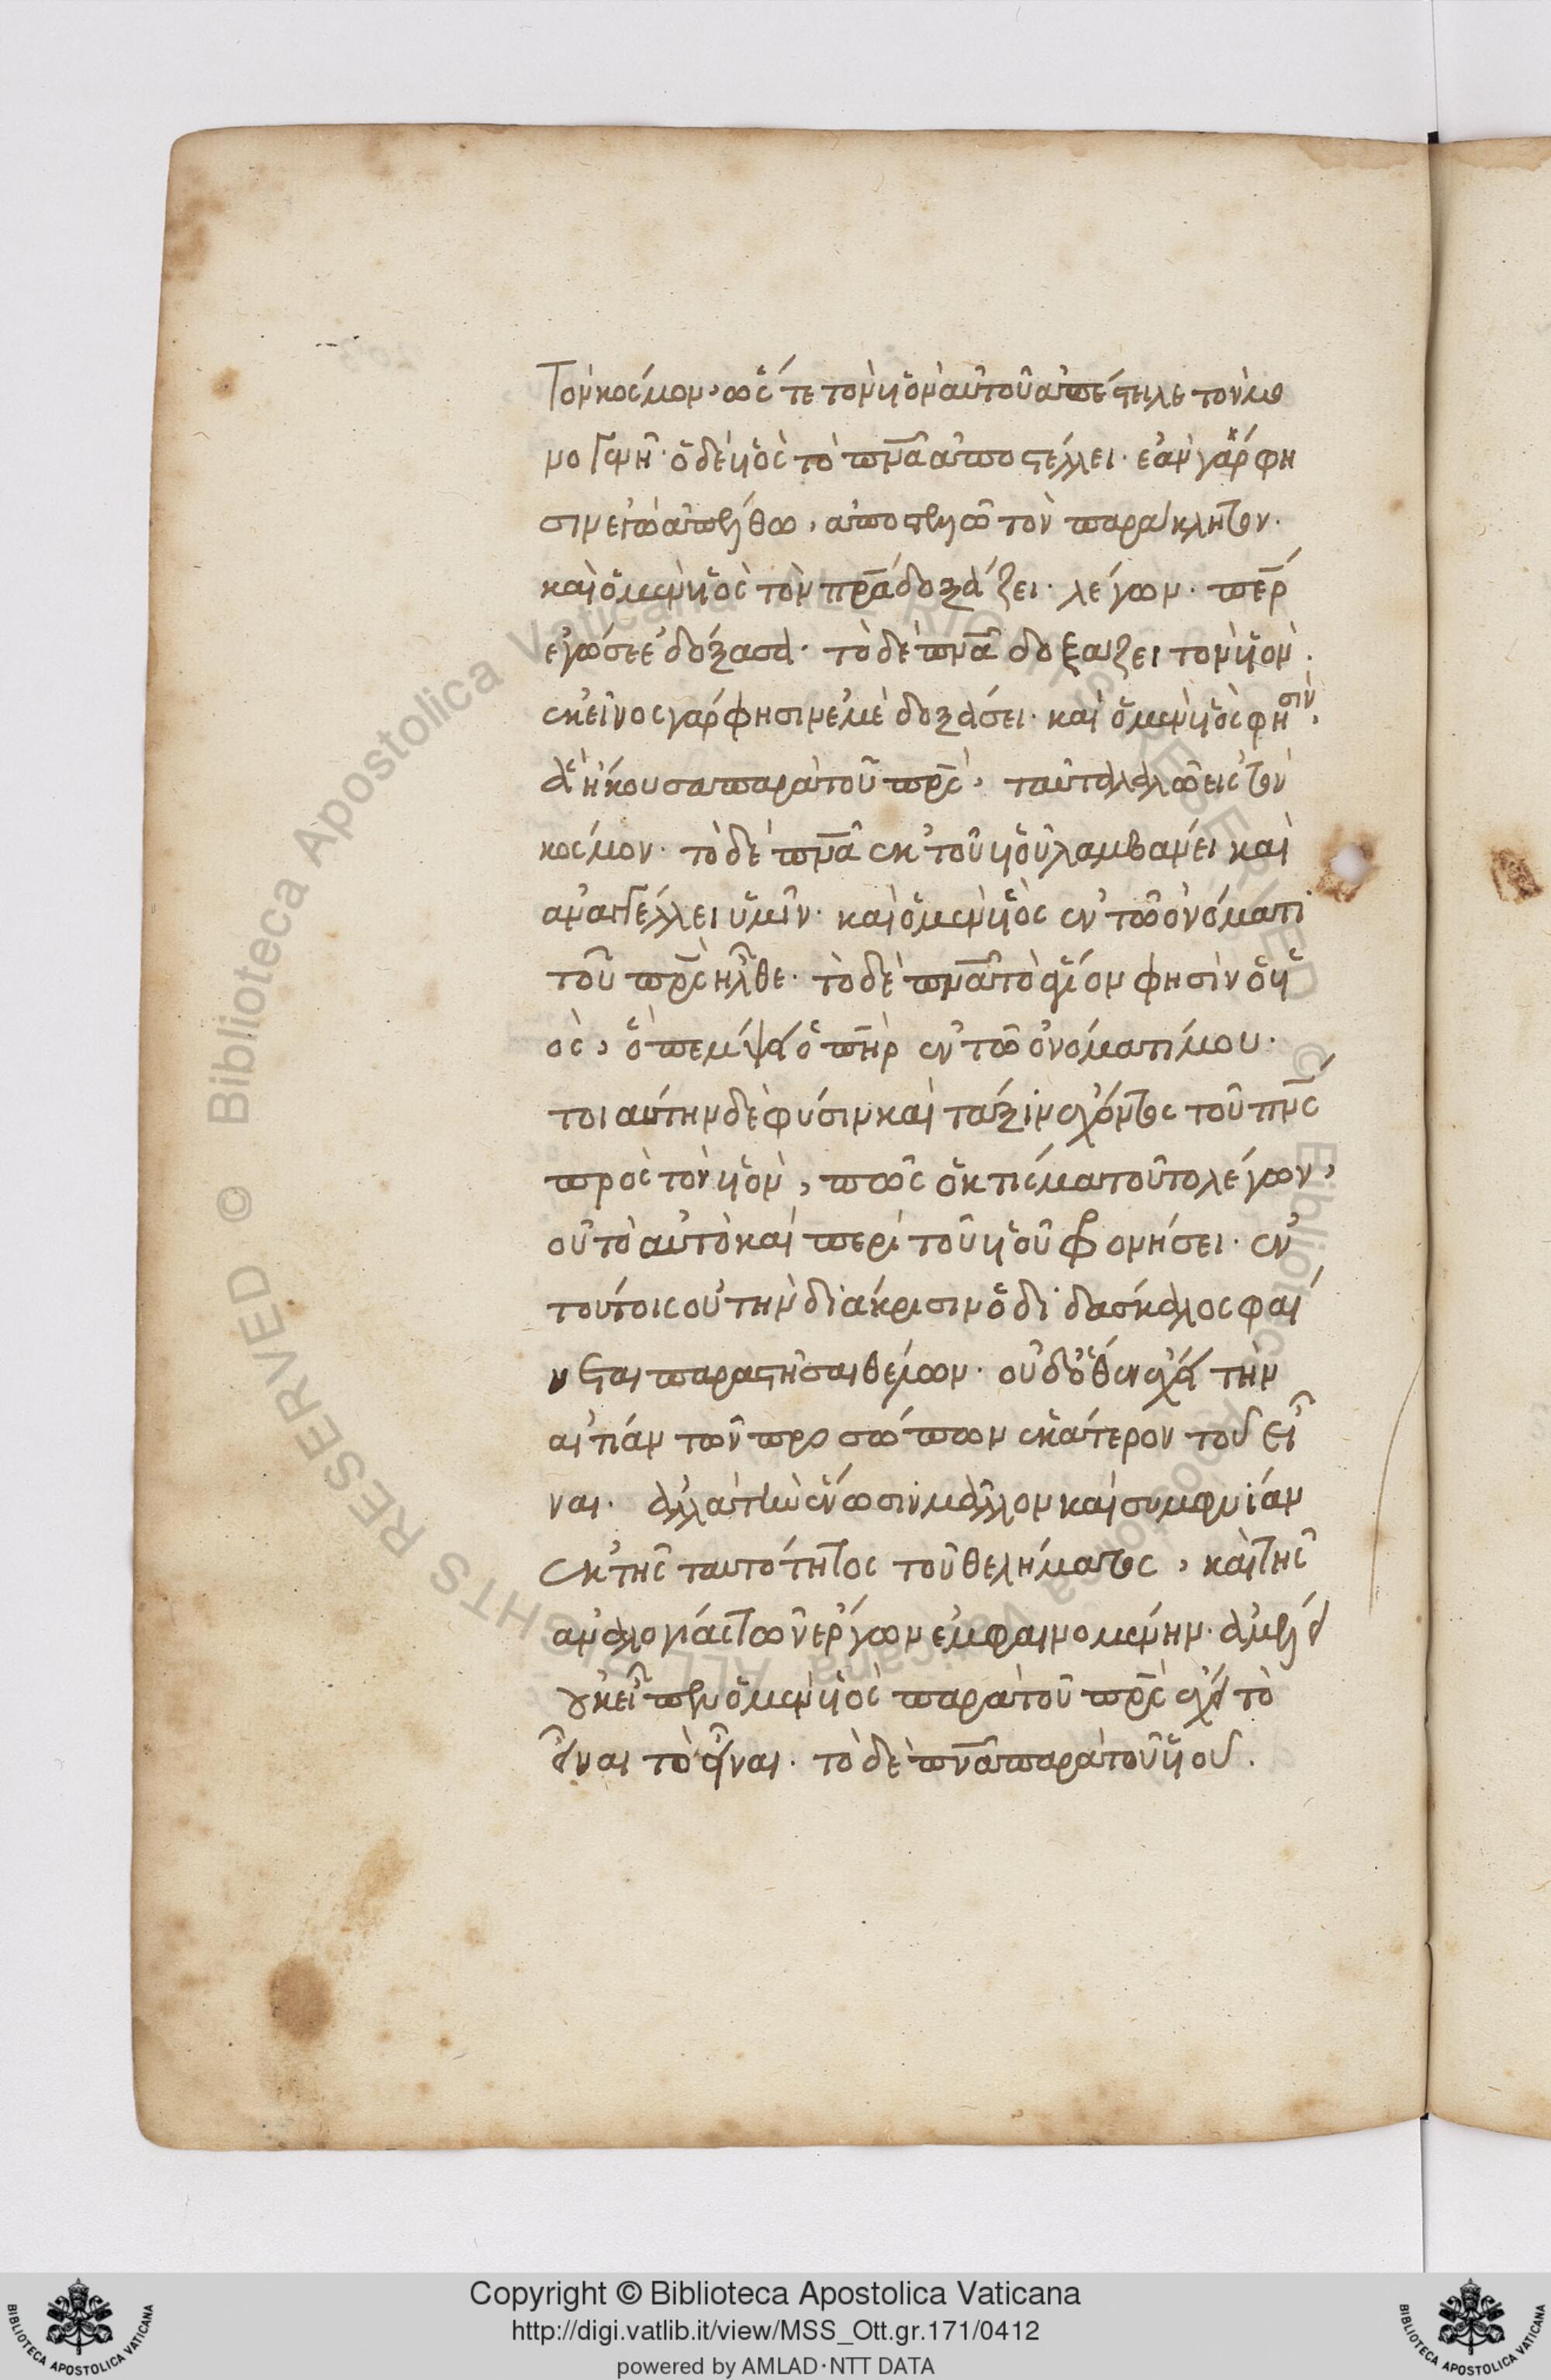 Τὸν κόσμον, ὥστε τὸν υἱὸν αὐτοῦ ἀπέστειλε τὸν μο
νογενῆ· ὁ δὲ υἱὸς τὸ πν̅α ἀποστέλλει· ἐὰν γάρ φη
σιν ἐγὼ ἀπέλθω, ἀποστελῶ τὸν παράκλητον·
καὶ ὁ μὲν υἱὸς τὸν πρ̅α δοξάζει· λέγων· πε̅ρ
ἐγώ σε ἐδόξασα· τὸ δὲ πν̅α δοξάζει τὸν υἱόν·
ἐκεῖνος γάρ φησιν ἐμὲ δοξάσει· καὶ ὁ μὲν υἱὸς φησὶν,
ἃ ἤκουσα παρὰ τοῦ πρ̅ς, ταῦτα λαλῶ εἰς τὸν
κόσμον· τὸ δὲ πν̅α ἐκ τοῦ υἱοῦ λαμβάνει καὶ
ἀναγγέλλει ὑμῖν· καὶ ὁ μὲν υἱὸς ἐν τῶ ὀνόματι
τοῦ πρ̅ς ἦλθε· τὸ δὲ πν̅α τὸ ἅγιον φησὶν ὁ υἱ
ὸς, ὃ πέμψει ὁ πη̅ρ ἐν τῶ ὀνόματί μου·
τοιαύτην δὲ φύσιν καὶ τάξιν ἔχοντος τοῦ πν̅ς
πρὸς τὸν υἱὸν, πῶς ὁ κτίσμα τοῦτο λέγων,
οὐ τὸ αὐτὸ καὶ περὶ τοῦ υἱοῦ φρονήσει· ἐν
τούτοις οὐ τὴν διάκρισιν ὁ διδάσκαλος φαί
νεται παραστῆσαι θέλων· οὐδ' ὅθεν ἔχει τὴν
αἰτίαν τῶν προσώπων ἑκάτερον τοῦ εἶ
ναι· ἀλλὰ τὴν ἕνωσιν μᾶλλον καὶ συμφυΐαν
ἐκ τῆς ταυτότητος τοῦ θελήματος, καὶ τῆς
ἀναλογίας τῶν ἔργων ἐμφαινομένην·
οὐκ εἶπεν ὁ μὲν υἱὸς παρὰ τοῦ πρ̅ς ἔχει τὸ
εἶναι τὸ εἶναι· τὸ δὲ πν̅α παρὰ τοῦ υἱοῦ.
Copyright © Biblioteca Apostolica Vaticana
http://digi.vatlib.it/view/MSS_Ott.gr.171/0412
powered by AMLAD·NTT DATA